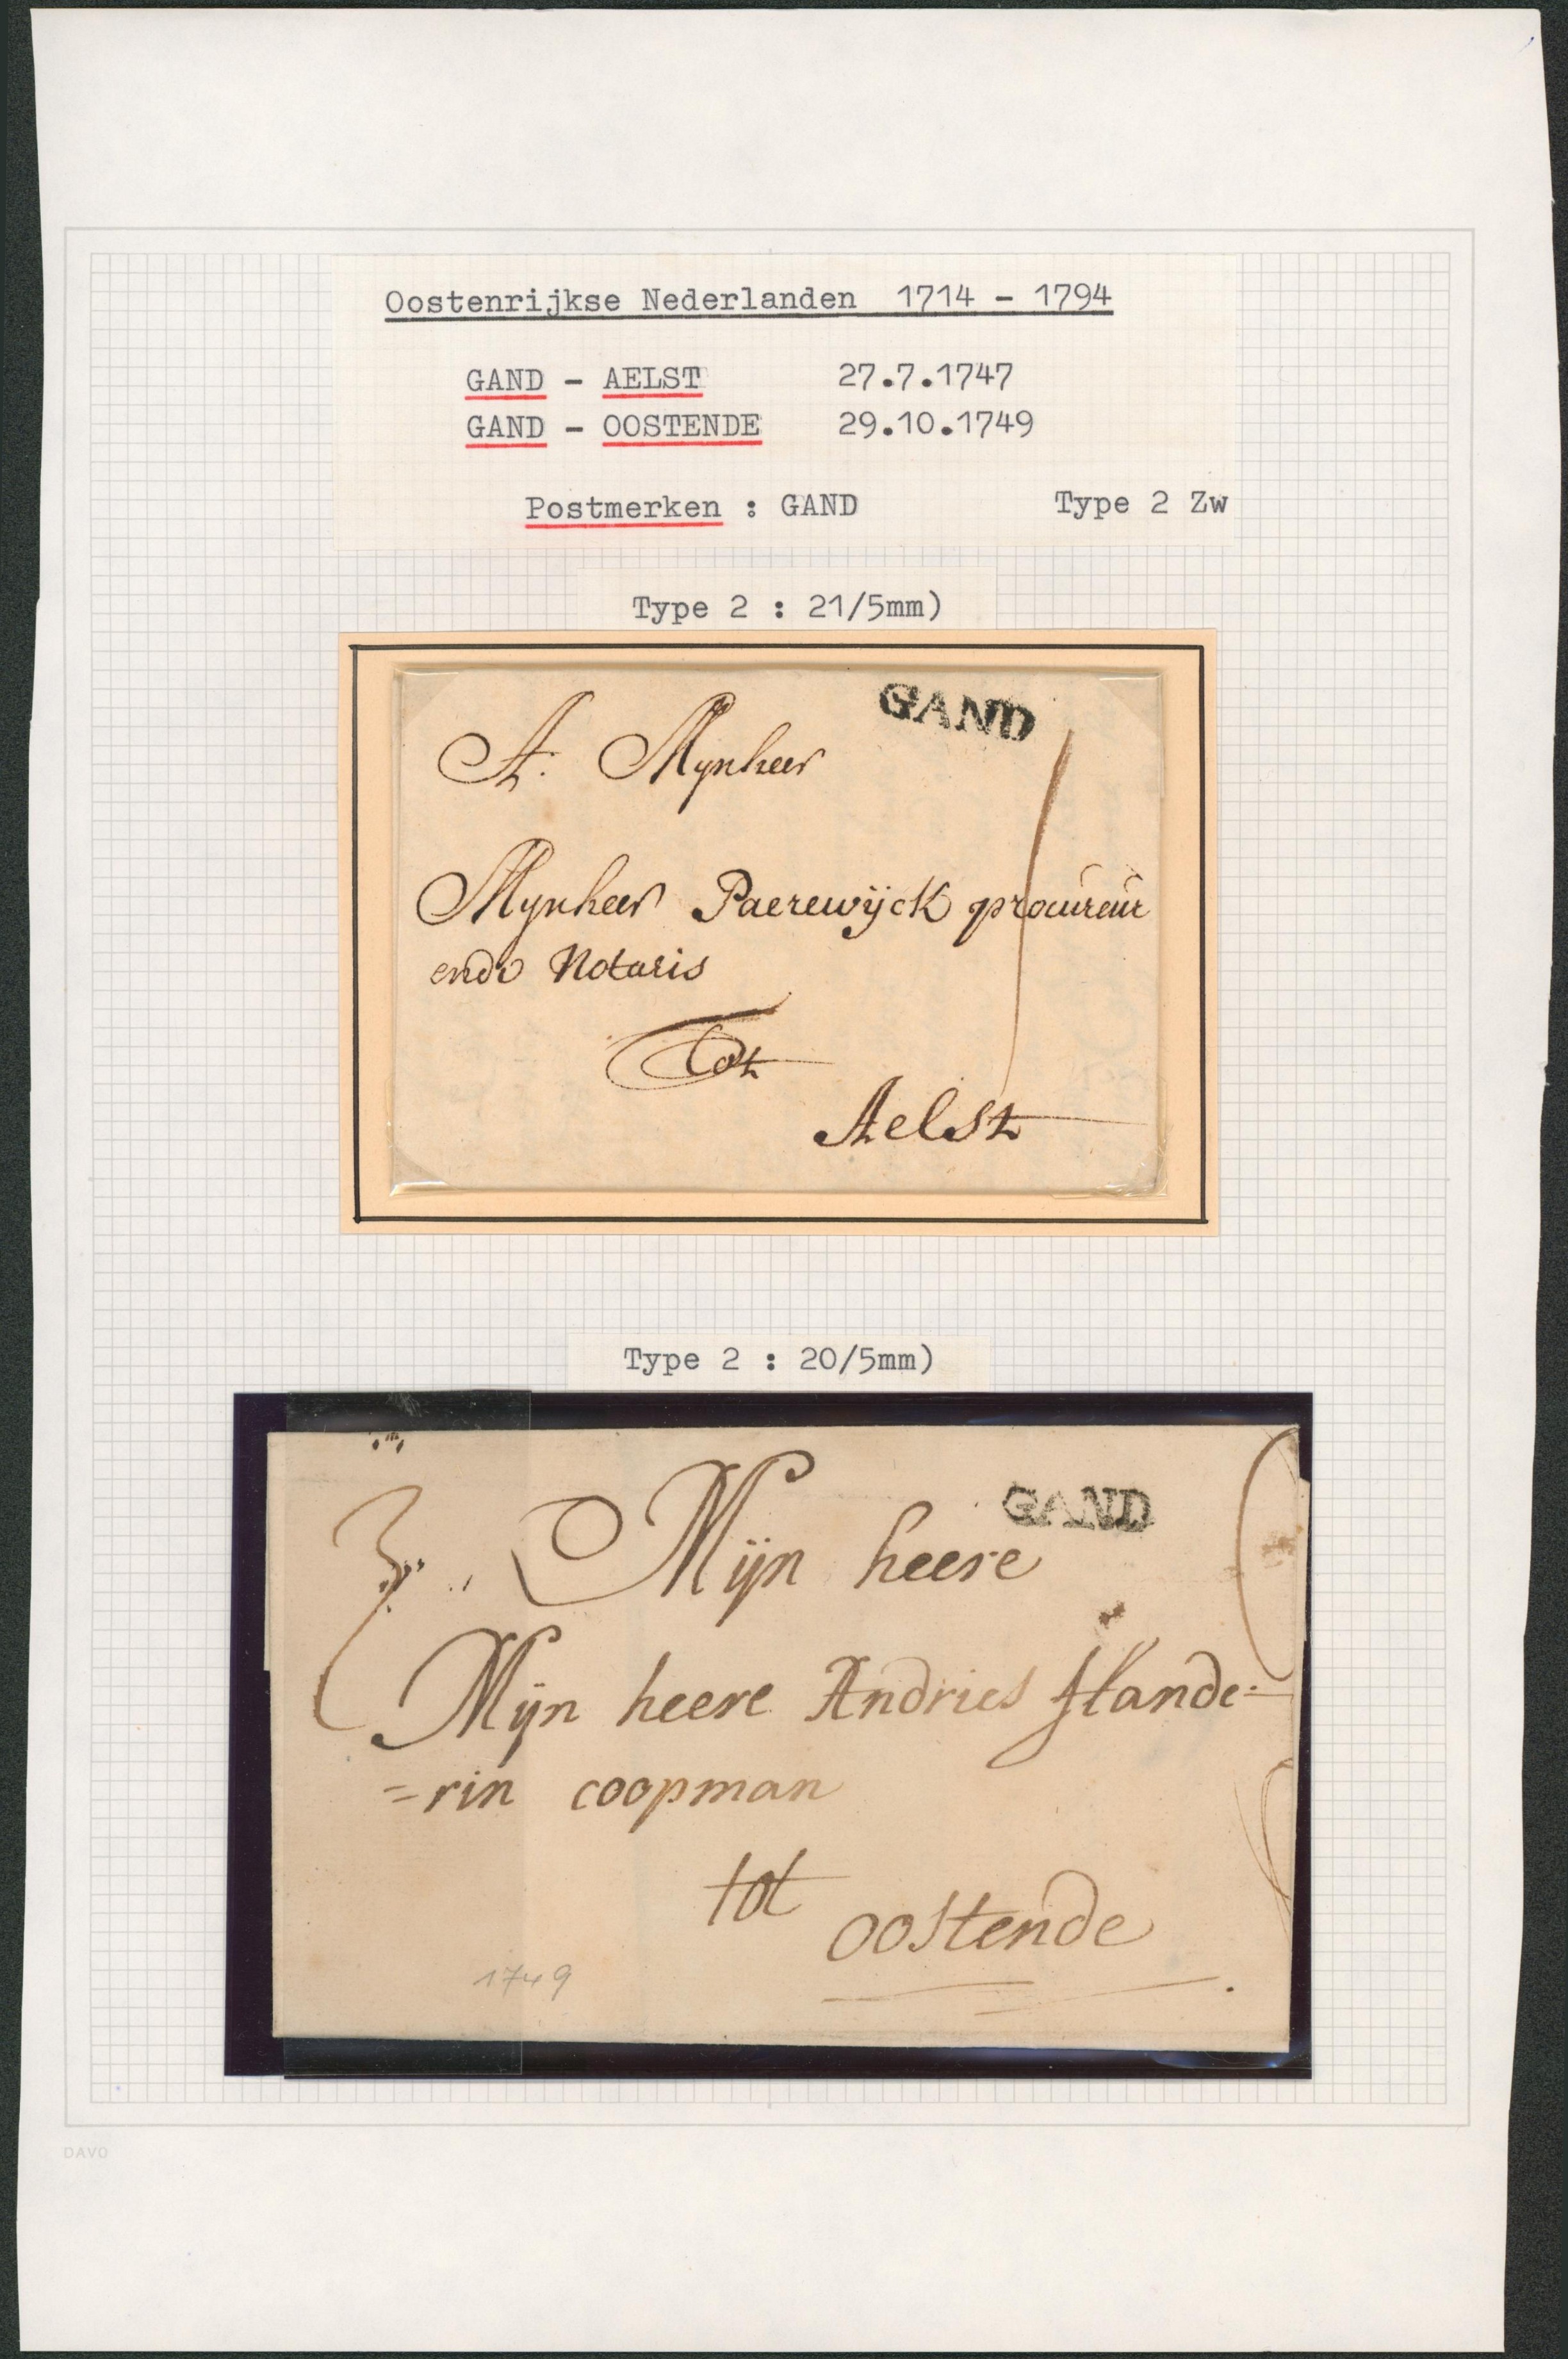 Oostenrijkse Nederlanden 1714 - 1794
GAND - AELST 27.7.1747
GAND - OOSTENDE 29.10.1749
Postmerken : GAND Type 2 Zw
Type 2 : 21/5mm)
GAND
A. Mynheer
Mynheer Paerewijck procureur
ende Notaris
Tot
Aelst
Type 2 : 20/5mm)
GAND
Mijn heere
Mijn heere Andries flande=
=rin coopman
tot
oostende
1749
DAVO